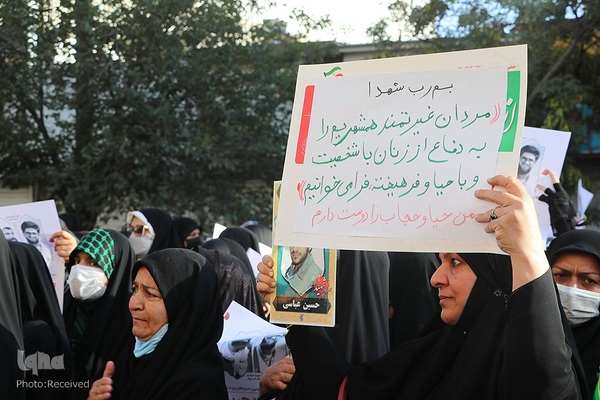 بسم رب شهدا
«مردان غیرتمند همشهریم را
به دفاع از زنان با شخصیت
و با حیا و فرهیخته فرا می خوانیم»
من حیا و حجاب را دوست دارم
حسین عباسی
iqna
Photo:Received